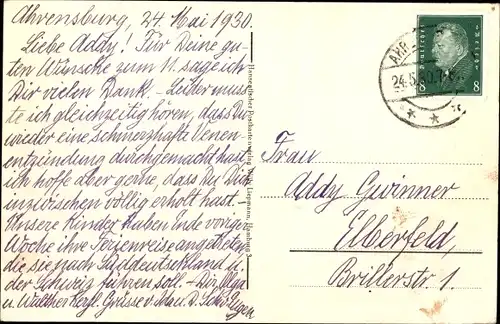 Ahrensburg, 24. Mai 1930.
Liebe Addy! Für Deine gu-
ten Wünsche zum 11. sage ich
Dir vielen Dank. - Leider muss-
te ich gleichzeitig hören, dass Du
wieder eine schmerzhafte Venen-
entzündung durchgemacht hast
ich hoffe aber gerne, dass Du Dich
inzwischen völlig erholt hast. -
Unsere Kinder haben Ende voriger
Woche ihre Ferienreise angetreten
die sie nach Süddeutschland u.
der Schweiz führen soll. - Dir, Olga
u. Walther herzl. Grüsse v. Max u. D.
Eugen
Hanseatischer Postkartenverlag Hamburg 3
AHR
24.5.30.
Deutsches Reich
8 8
Frau
Addy Gwinner
Elberfeld,
Brillerstr. 1.